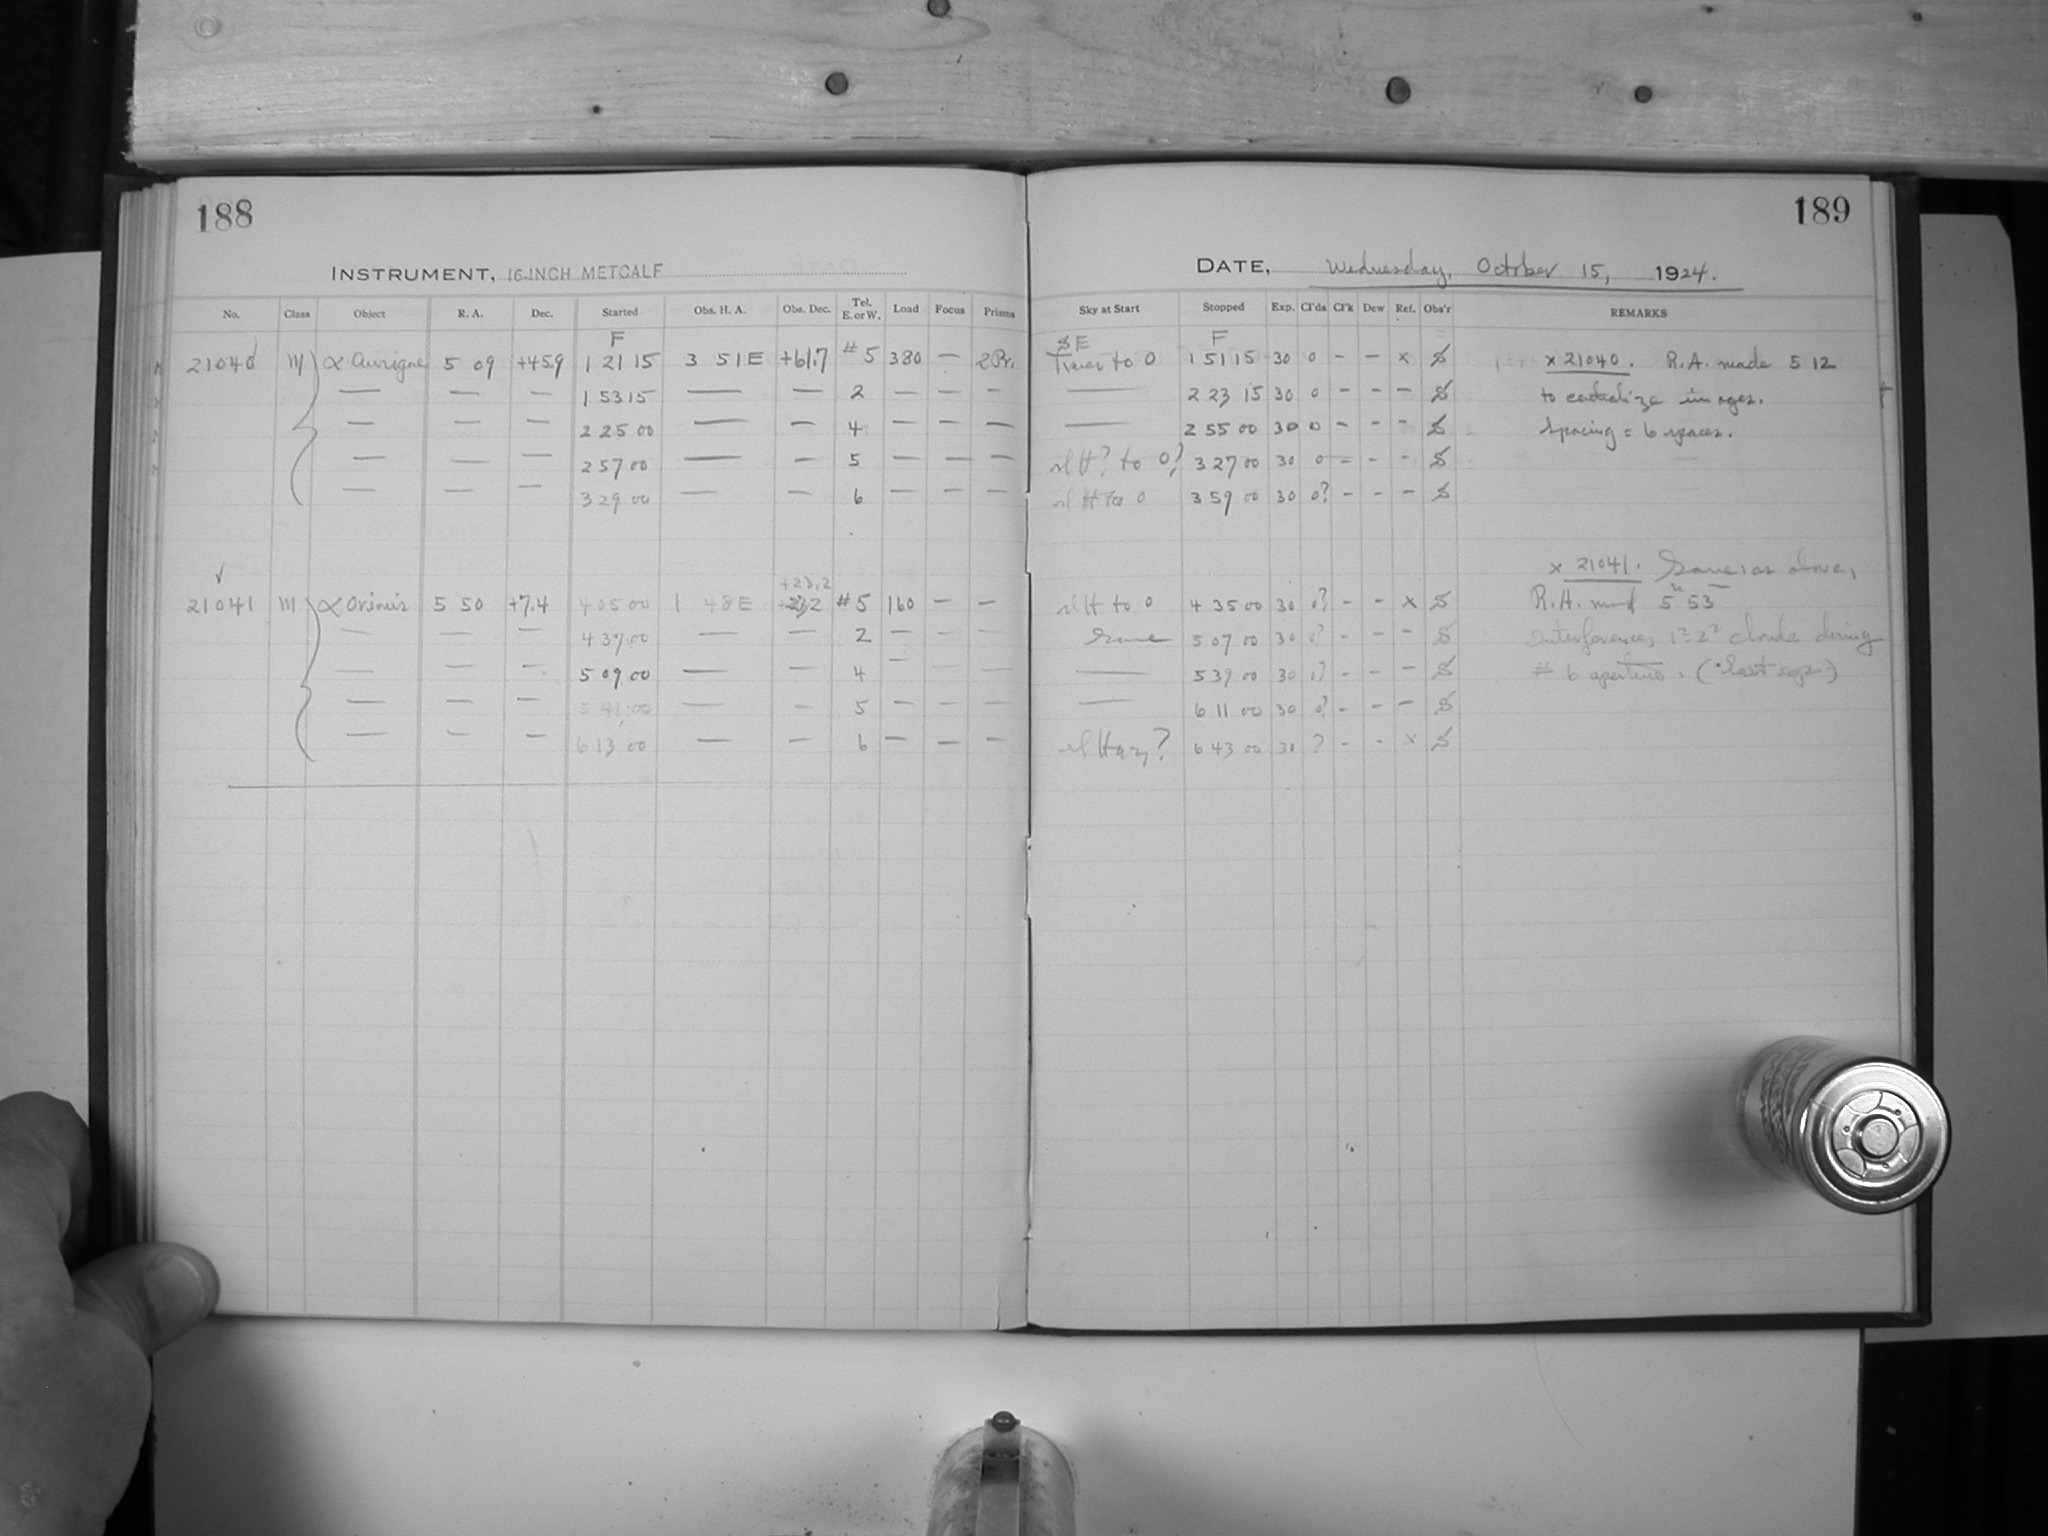 188
189
INSTRUMENT, 16-INCH METCALF
DATE, Wednesday, October 15, 1924.
No. Class Object R. A. Dec. Started Obs. H. A. Obs. Dec. Tel. E. or W. Load Focus Prisms Sky at Start Stopped Exp. Cl'ds Cl'k Dew Ref. Obs'r REMARKS
F S E F
21040 M α Aurigae 5 09 +45.9 1 21 15 3 51 E +61.7 #5 380 — 2 Pr. to 0 1 51 15 30 0 - - x S x 21040. R.A. made 5 12
— — — 1 53 15 — — 2 — — — — 2 23 15 30 0 - - - S to centralize images.
— — — 2 25 00 — — 4 — — — — 2 55 00 30 0 - - - S Spacing = 6 spaces.
— — — 2 57 00 — — 5 — — — sl H? to 0? 3 27 00 30 0 - - - S
— — — 3 29 00 — — 6 — — — sl H to 0 3 59 00 30 0? - - - S
x 21041. Same as above,
+23.2
21041 M α Orionis 5 50 +7.4 4 05 00 1 48 E #5 160 — — sl H to 0 4 35 00 30 0? - - x S R.A. made 5 53
— — — 4 37 00 — — 2 — — — Same 5 07 00 30 0? - - - S Interference, clouds during
— — — 5 09 00 — — 4 — — — — 5 39 00 30 0? - - - S # 6 aperture. (last exp.)
— — — 5 41 00 — — 5 — — — — 6 11 00 30 0? - - - S
— — — 6 13 00 — — 6 — — — sl Hazy? 6 43 00 30 ? - - x S